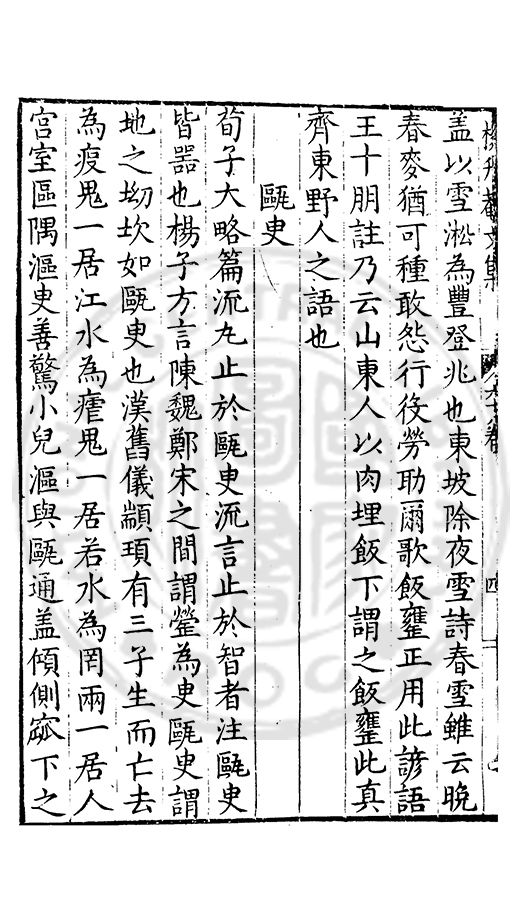 盖以雪淞為豐登兆也東坡除夜雪詩春雪雖云晚
春麥猶可種敢怨行役勞助爾歌飯甕正用此諺語
王十朋註乃云山東人以肉埋飯下謂之飯甕此真
齊東野人之語也
甌臾
荀子大略篇流丸止於甌臾流言止於智者注甌臾
皆噐也楊子方言陳魏鄭宋之間謂罃為臾甌臾謂
地之坳坎如甌臾也漢舊儀顓頊有三子生而亡去
為疫鬼一居江水為瘧鬼一居若水為罔兩一居人
宫室區隅漚臾善驚小兒漚與甌通盖傾側窳下之